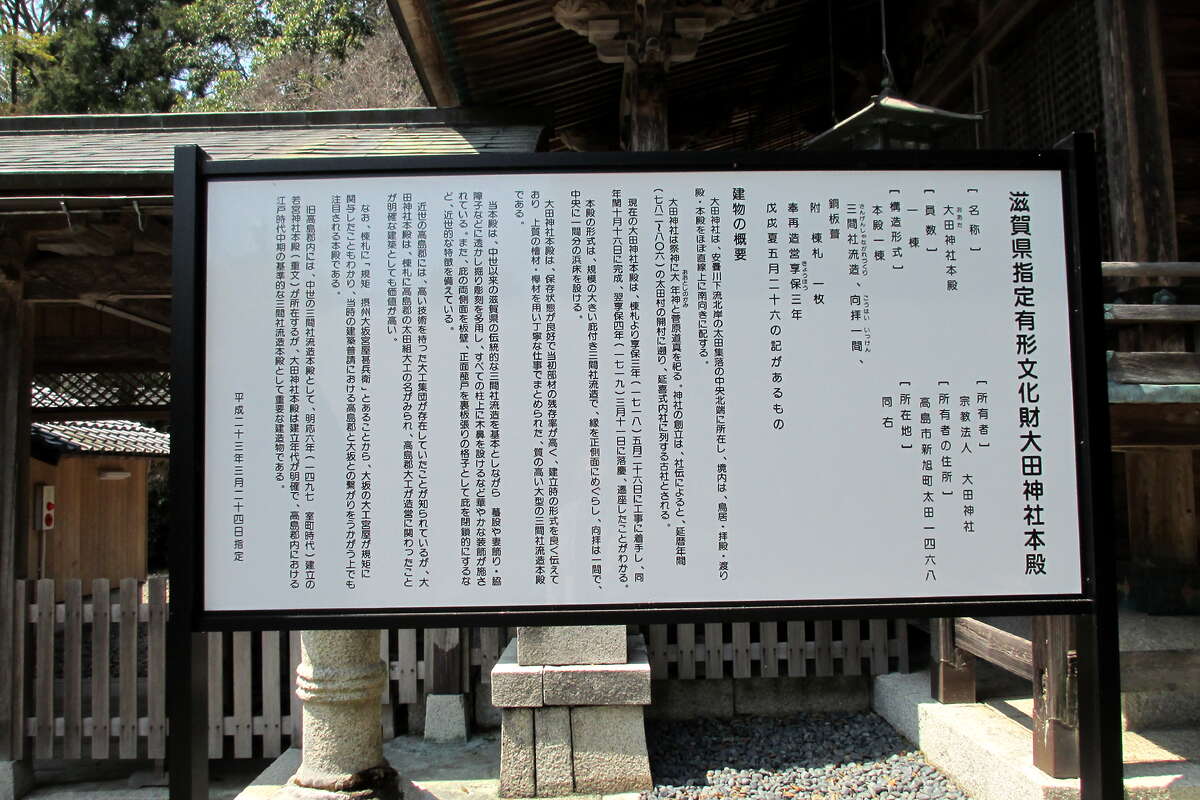 滋賀県指定有形文化財大田神社本殿
［名称］
大田神社本殿
［員数］
一棟
［構造形式］
本殿一棟
三間社流造、向拝一間、
銅板葺
附　棟札　一枚
奉再造営享保三年
戊戌夏五月二十六の記があるもの
［所有者］
宗教法人　大田神社
［所有者の住所］
高島市新旭町太田一四六八
［所在地］
同右
建物の概要
大田神社は、安曇川下流北岸の太田集落の中央北端に所在し、境内は、鳥居・拝殿・渡り
殿・本殿をほぼ直線上に南向きに配する。
大田神社は祭神に大年神と菅原道真を祀る。神社の創立は、社伝によると、延暦年間
（七八二～八〇六）の太田村の開村に遡り、延喜式内社に列する古社とされる。
現在の大田神社本殿は、棟札より享保三年（一七一八）五月二十六日に工事に着手し、同
年閏十月十六日に完成、翌享保四年（一七一九）三月十一日に落慶、遷座したことがわかる。
本殿の形式は、規模の大きい庇付き三間社流造で、縁を正側面にめぐらし、向拝は一間で、
中央に一間分の浜床を設ける。
大田神社本殿は、保存状態が良好で当初部材の残存率が高く、建立時の形式を良く伝えて
おり、上質の檜材・欅材を用い丁寧な仕事でまとめられた、質の高い大型の三間社流造本殿
である。
当本殿は、中世以来の滋賀県の伝統的な三間社流造を基本としながら、蟇股や妻飾り・脇
障子などに透かし掘り彫刻を多用し、すべての柱上に木鼻を設けるなど華やかな装飾が施さ
れている。また、庇の両側面を板壁、正面蔀戸を裏板張りの格子として庇を閉鎖的にするな
ど、近世的な特徴を備えている。
近世の高島郡には、高い技術を持った大工集団が存在していたことが知られているが、大
田神社本殿は、棟札に高島郡の太田組大工の名がみられ、高島郡大工が造営に関わったこと
が明確な建築としても価値が高い。
なお、棟札に「規矩　摂州大坂宮屋甚兵衛」とあることから、大坂の大工宮屋が規矩に
関与したこともわかり、当時の建築普請における高島郡と大坂との繋がりをうかがう上でも
注目される本殿である。
旧高島郡内には、中世の三間社流造本殿として、明応六年（一四九七　室町時代）建立の
若宮神社本殿（重文）が所在するが、大田神社本殿は建立年代が明確で、高島郡内における
江戸時代中期の基準的な三間社流造本殿として重要な建造物である。
平成二十三年三月二十四日指定